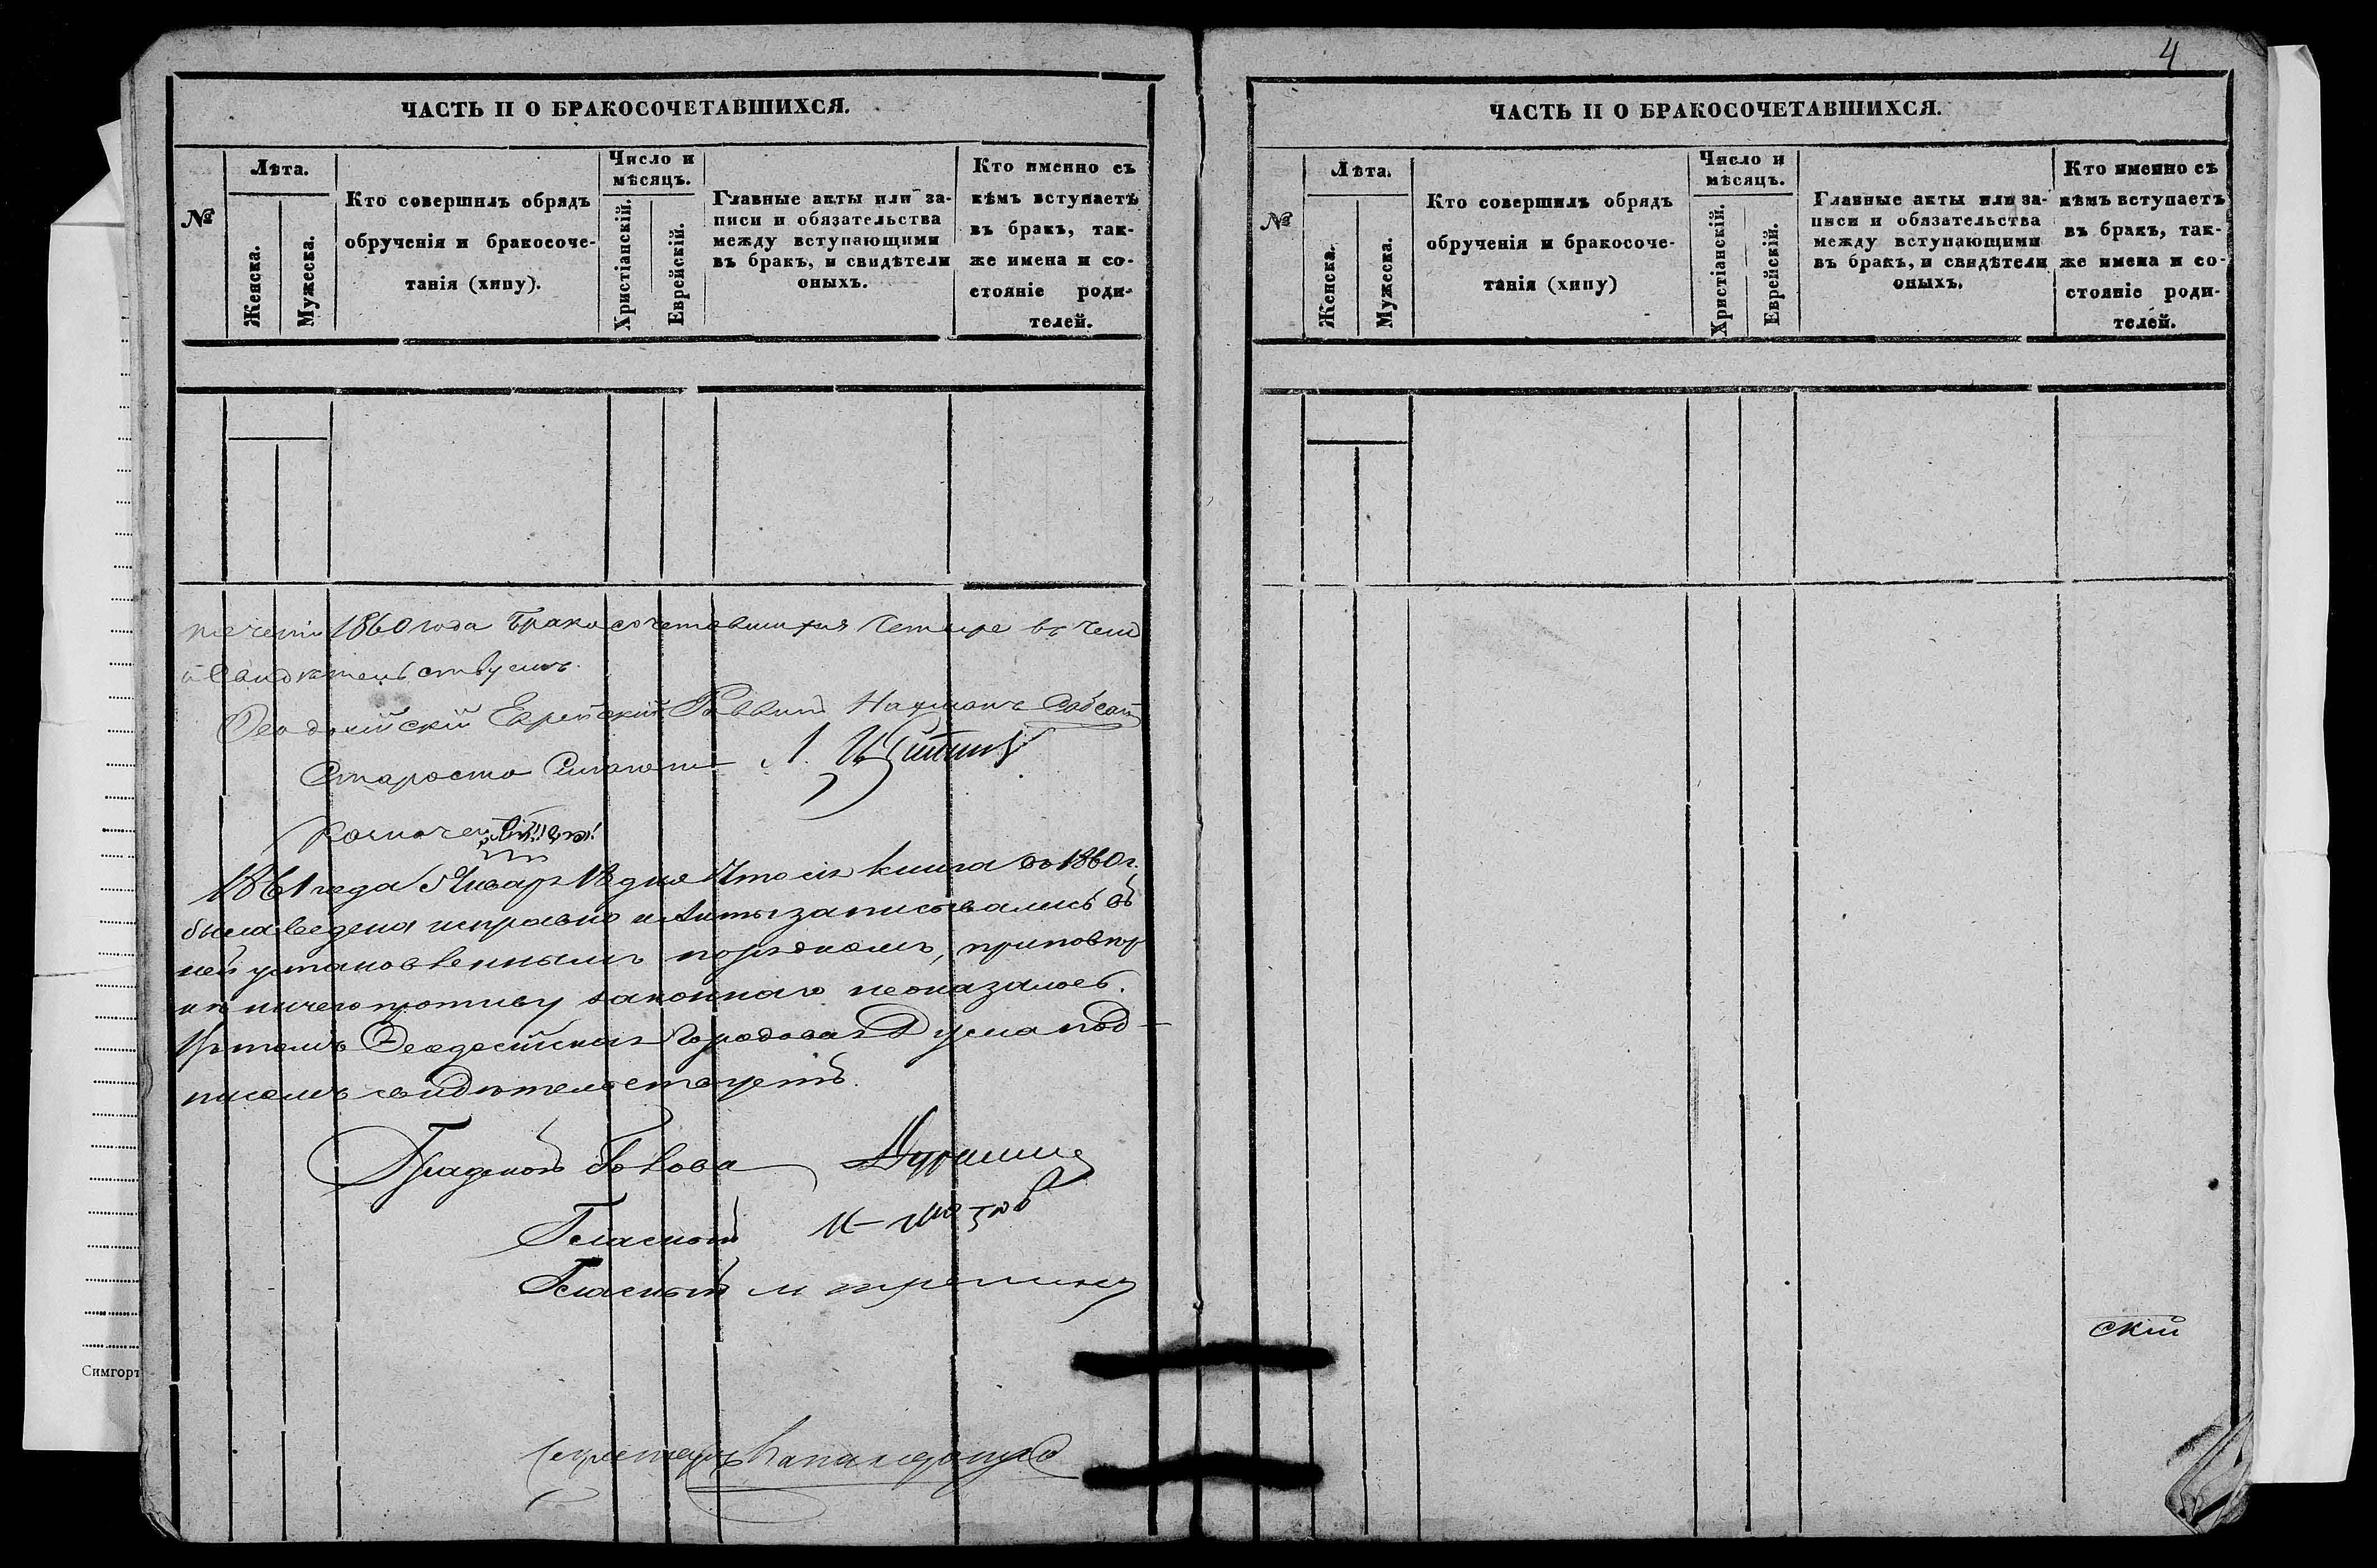 ЧАСТЬ II О БРАКОСОЧЕТАВШИХСЯ.
№
Лѣта.
Женска.
Мужеска.
Кто совершилъ обрядъ
обрученія и бракосоче-
танія (хипу).
Число и
мѣсяцъ.
Христіанскій.
Еврейскій.
Главные акты или за-
писи и обязательства
между вступающими
въ бракъ, и свидѣтели
оныхъ.
Кто именно съ
кѣмъ вступаетъ
въ бракъ, так-
же имена и со-
стояніе роди-
телей.
течети 1860 года Бракосочетавшихся четыре въ чемъ
и Свидѣтельствуемъ.
Феодосійскій Еврейскій Раввинъ Нахманъ
Староста Л.
Казначей
1861 года Январ 18 дня Что сія книга за 1860 г.
была ведена исправно и Акты записывались въ
ней установленнымъ порядкомъ, при повѣр
кѣ ничего противу законнаго неоказалось.
Въ томъ Феодосійская Городовая Дума под-
писомъ свидѣтельствуетъ.
Градской Голова
Гласный
Гласный
Секретарь
Симгорт
4
ЧАСТЬ II О БРАКОСОЧЕТАВШИХСЯ.
№
Лѣта.
Женска.
Мужеска.
Кто совершилъ обрядъ
обрученія и бракосоче-
танія (хипу)
Число и
мѣсяцъ.
Христіанскій.
Еврейскій.
Главные акты или за-
писи и обязательства
между вступающими
въ бракъ, и свидѣтели
оныхъ.
Кто именно съ
кѣмъ вступаетъ
въ бракъ, так-
же имена и со-
стояніе роди-
телей.
скій